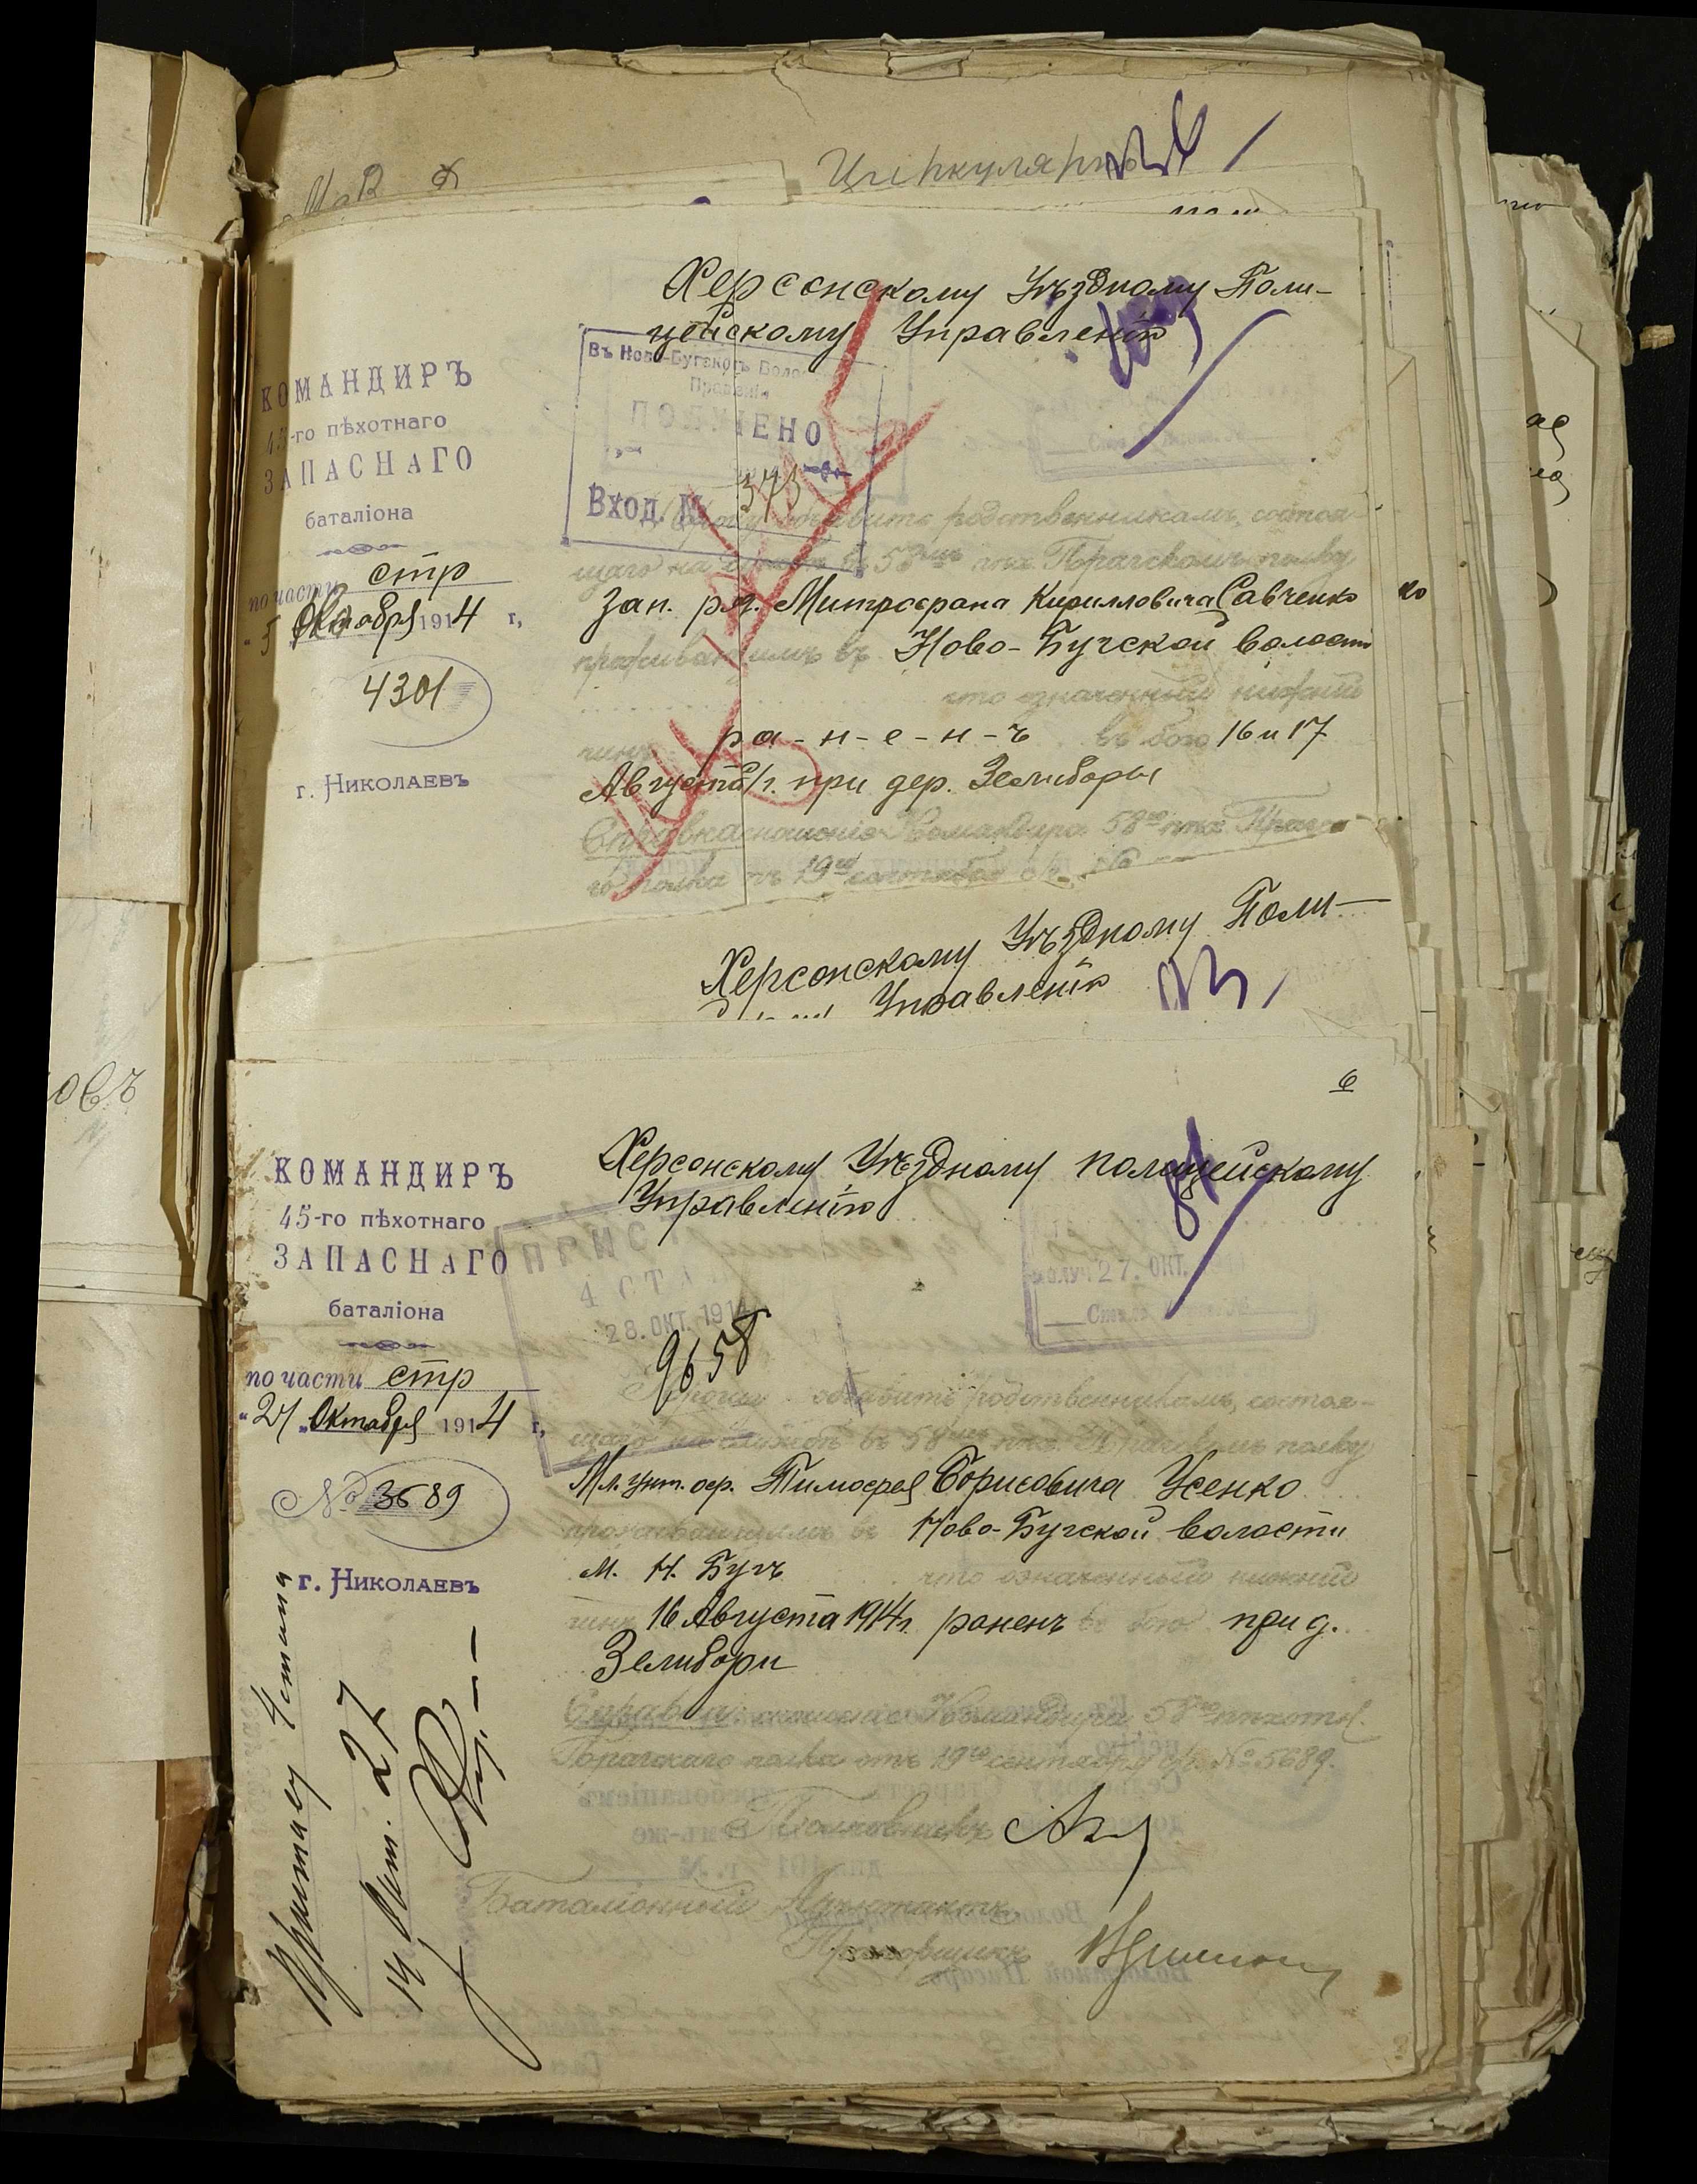 Циркуляръ
Херсонскому Уѣздному Поли-
цейскому Управленію
КОМАНДИРЪ
45-го пѣхотнаго
ЗАПАСНАГО
баталіона
по части стр
"5" Октября 1914 г,
4301
г. Николаевъ
Въ Ново-Бугском Волост
Правленіи
ПОЛУЧЕНО
Вход. № 373
Прошу объявить родственникамъ, состоя-
щаго на службѣ въ 58мъ пѣх. Прагскомъ полку
Зап. ряд. Митрофана Кирилловича Савченко
проживающимъ въ Ново-Бугской волости
что означенный нижній
чинъ р а - н - е - н - ъ въ бою 16 и 17
Августа с/г. при дер. Зелиборы
Справка: отношеніе Командира 58го пѣх. Прагска-
го полка отъ 19го сентября с/г. №
Херсонскому Уѣздному Поли-
Управленію
6
КОМАНДИРЪ
45-го пѣхотнаго
ЗАПАСНАГО
баталіона
по части стр
"21" Октября 1914 г,
№ 3689
г. Николаевъ
Херсонскому Уѣздному полицейскому
Управленію
ПРИСТ
4 СТАНА
28. ОКТ. 1914
9658
ПОЛУЧ 27. ОКТ.
Прошу объявить родственникамъ, состоя-
щаго на службѣ въ 58мъ пѣх. Прагскомъ полку
Мл. унт. оф. Тимофея Борисовича Усенко
проживающимъ въ Ново-Бугской волости
м. Н. Бугъ что означенный нижній
чинъ 16 Августа 1914 г. раненъ въ бою при д.
Зелибори
Справка: отношеніе Командира 58го пѣхотн.
Прагскаго полка отъ 19го сентября с/г. № 5689.
Полковникъ
Баталіонный Адъютантъ
Прапорщикъ
Приставу 4 стана
27